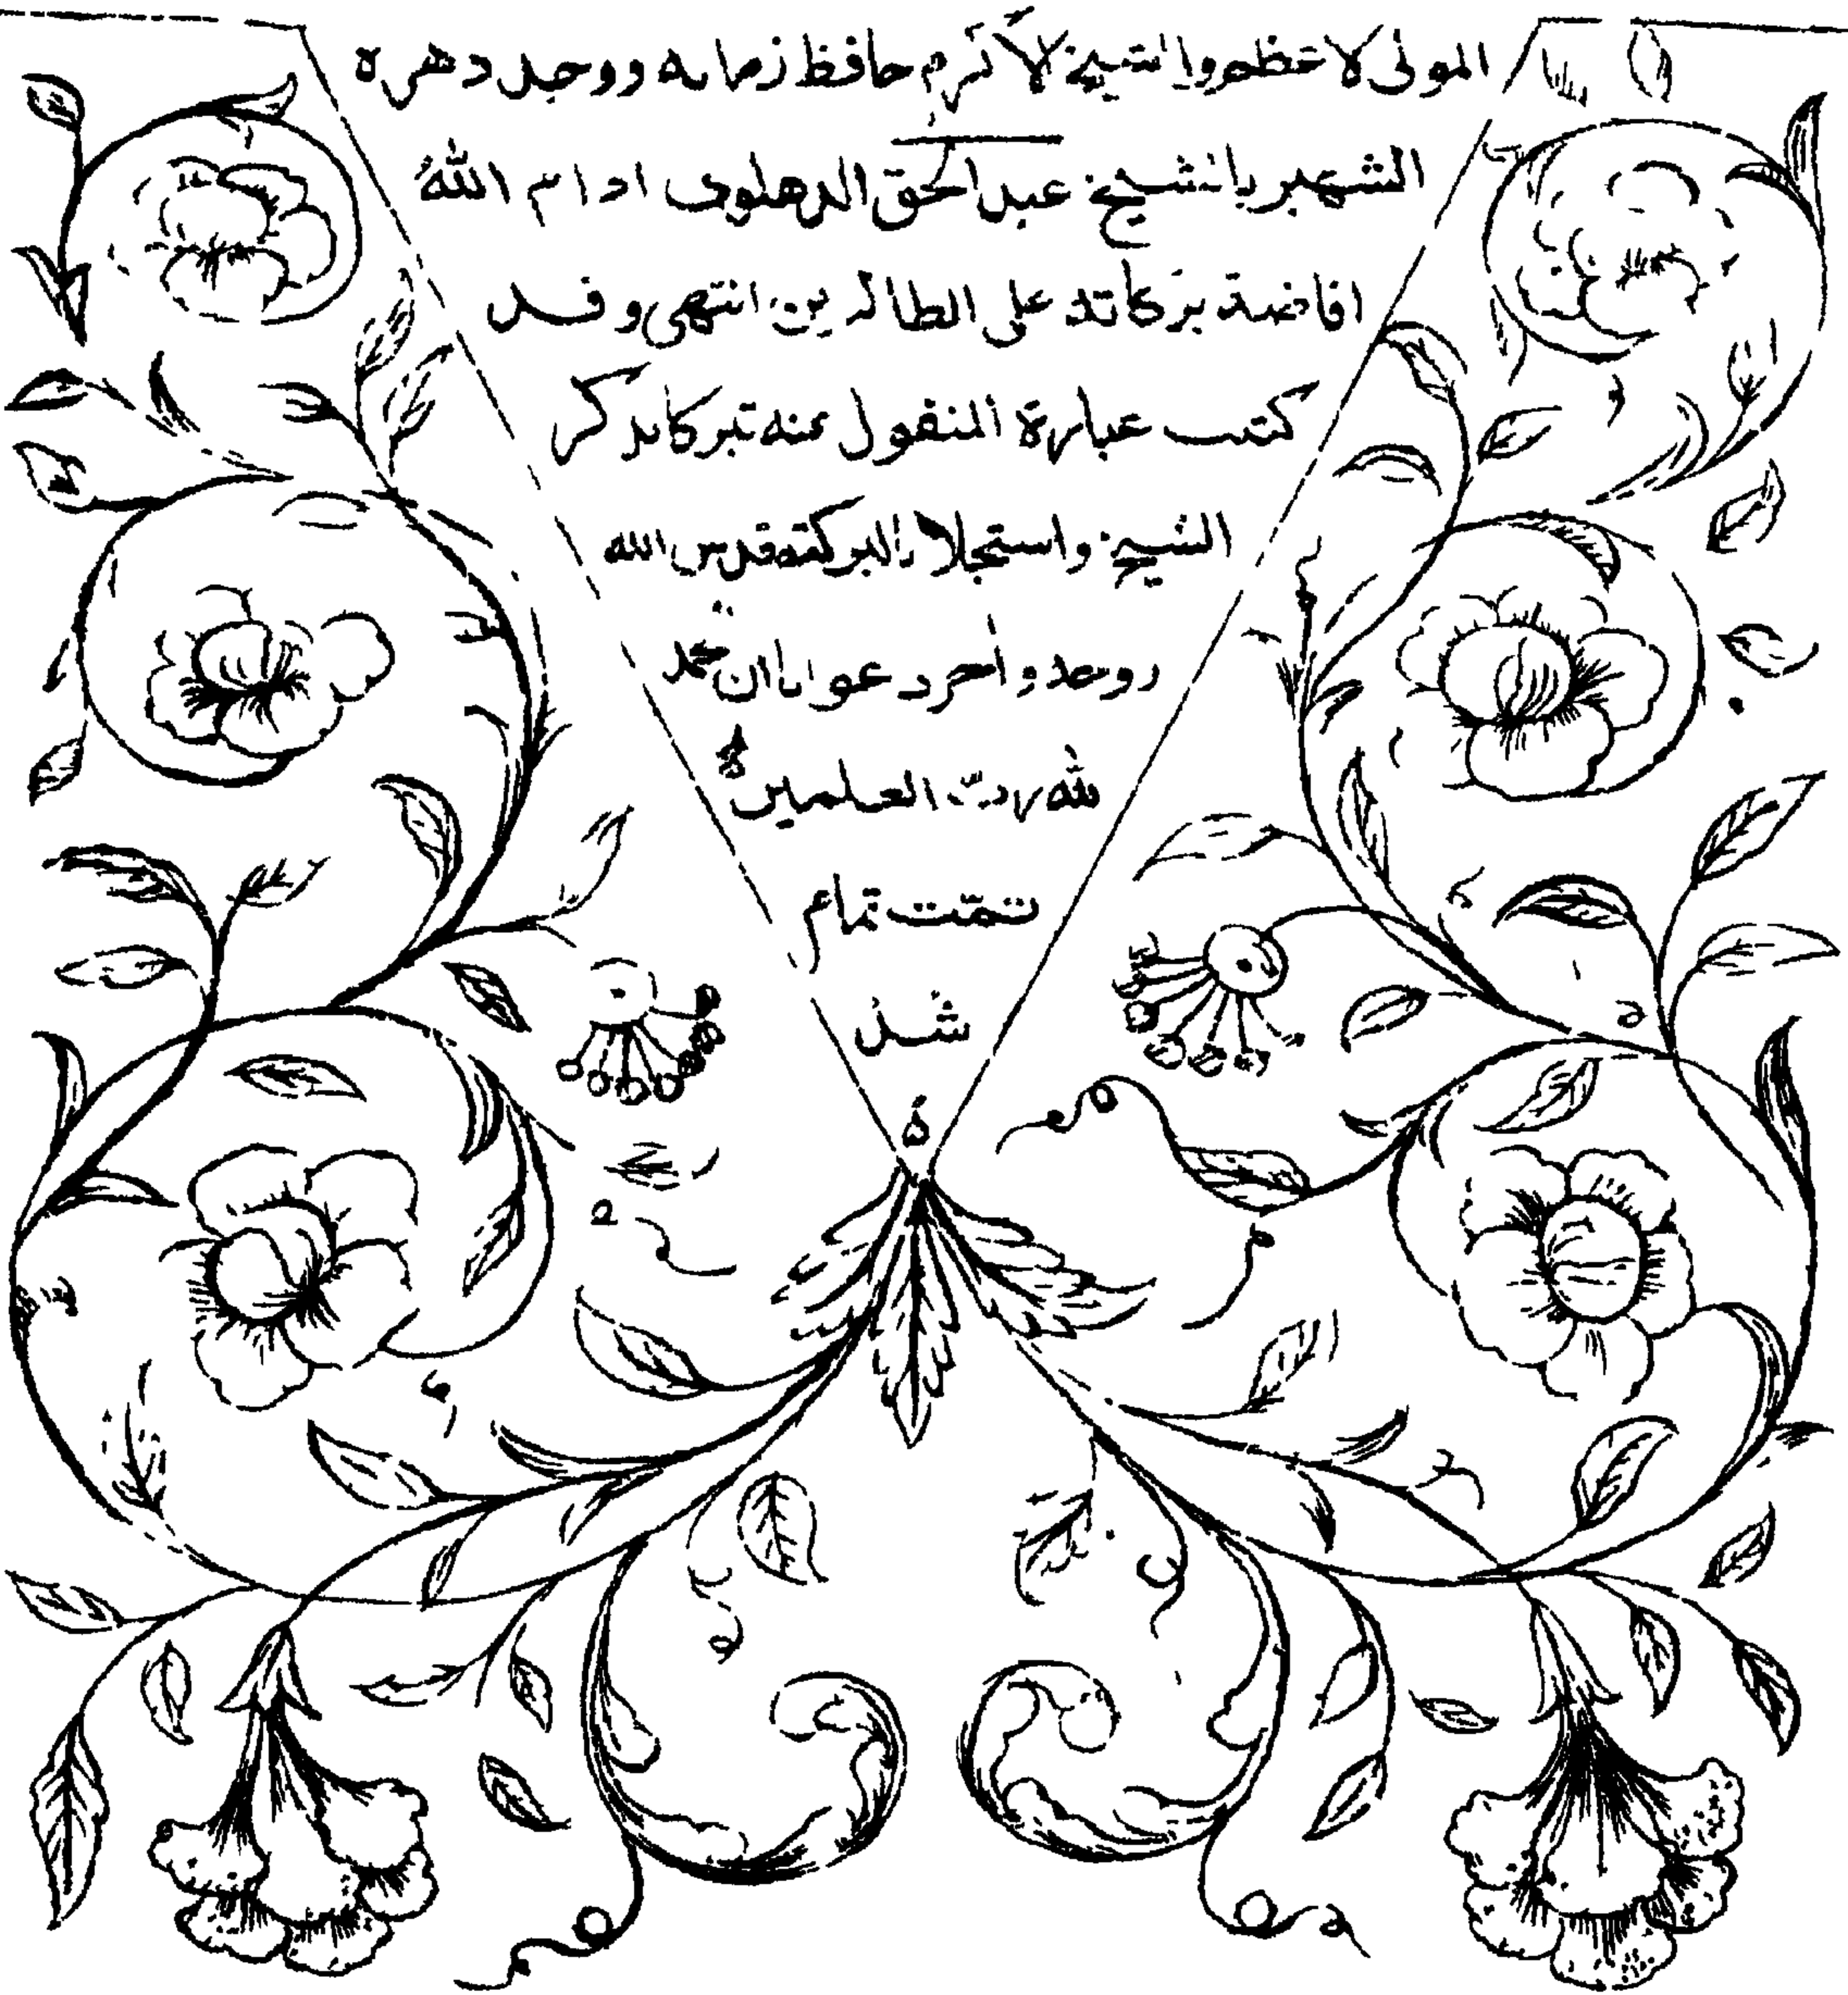 المولى الاعظم والشيخ الاكرم حافظ زمانه ووحيد دهره
الشهير بالشيخ عبدالحق الدهلوى ادام الله
افاضة بركاته على الطالبين انتهى وقد
كتبت عبارة المنقول عنه تبركا بذكر
الشيخ واستجلابا لبركته قدس الله
روحه وآخر دعوانا ان الحمد
لله رب العلمين
تمّت تمام
شد